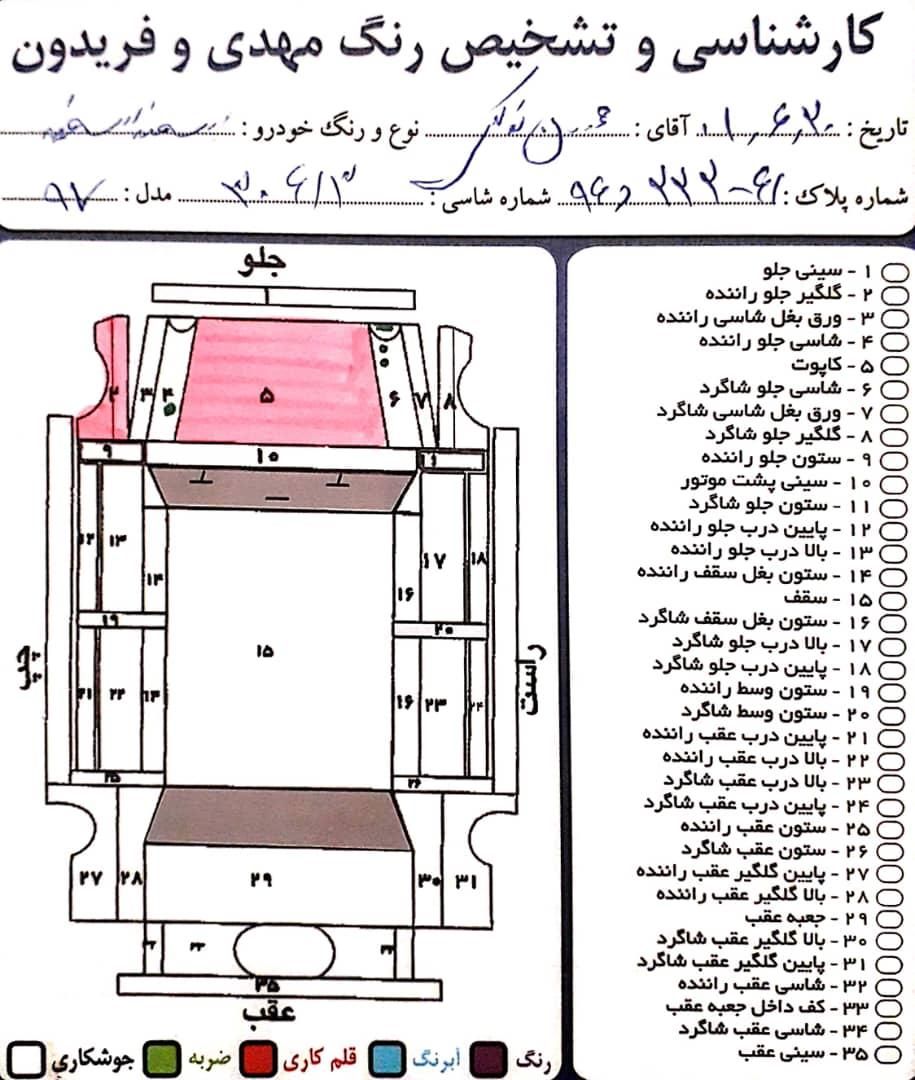 کارشناسی و تشخیص رنگ مهدی و فریدون
تاریخ : ۰۱٫۶٫۳۰ آقای : نوع و رنگ خودرو :
شماره پلاک : ۶۱-۲۲۳ د ۹۶ شماره شاسی : مدل : ۹۷
جلو
۱
۲ ۳ ۴ ۵ ۶ ۷ ۸
۹ ۱۰ ۱۱
۱۲ ۱۳ ۱۴ ۱۶ ۱۷ ۱۸
۱۹ ۲۰
۱۵
چپ
راست
۲۱ ۲۲ ۱۴ ۱۶ ۲۳ ۲۴
۲۵ ۲۶
۲۷ ۲۸ ۲۹ ۳۰ ۳۱
۳۵
عقب
جوشکاری ضربه قلم کاری آبرنگ رنگ
۱ - سینی جلو
۲ - گلگیر جلو راننده
۳ - ورق بغل شاسی راننده
۴ - شاسی جلو راننده
۵ - کاپوت
۶ - شاسی جلو شاگرد
۷ - ورق بغل شاسی شاگرد
۸ - گلگیر جلو شاگرد
۹ - ستون جلو راننده
۱۰ - سینی پشت موتور
۱۱ - ستون جلو شاگرد
۱۲ - پایین درب جلو راننده
۱۳ - بالا درب جلو راننده
۱۴ - ستون بغل سقف راننده
۱۵ - سقف
۱۶ - ستون بغل سقف شاگرد
۱۷ - بالا درب جلو شاگرد
۱۸ - پایین درب جلو شاگرد
۱۹ - ستون وسط راننده
۲۰ - ستون وسط شاگرد
۲۱ - پایین درب عقب راننده
۲۲ - بالا درب عقب راننده
۲۳ - بالا درب عقب شاگرد
۲۴ - پایین درب عقب شاگرد
۲۵ - ستون عقب راننده
۲۶ - ستون عقب شاگرد
۲۷ - پایین گلگیر عقب راننده
۲۸ - بالا گلگیر عقب راننده
۲۹ - جعبه عقب
۳۰ - بالا گلگیر عقب شاگرد
۳۱ - پایین گلگیر عقب شاگرد
۳۲ - شاسی عقب راننده
۳۳ - کف داخل جعبه عقب
۳۴ - شاسی عقب شاگرد
۳۵ - سینی عقب